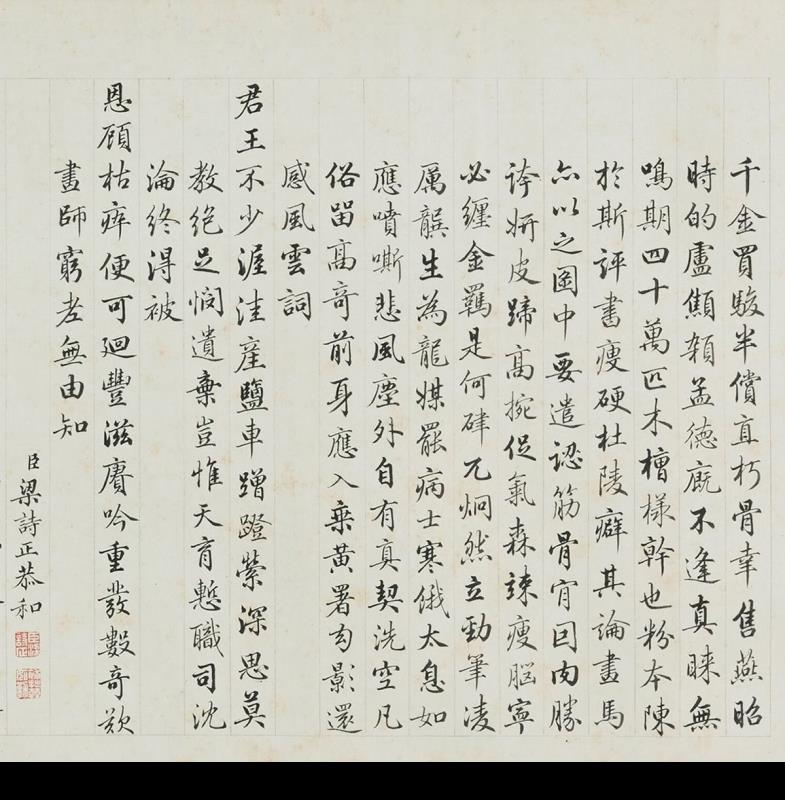 千金買駿半償直朽骨幸售燕昭
時的盧顱額孟德廄不逢真睞無
鳴期四十萬匹木檀樣幹也粉本陳
於斯評書瘦硬杜陵癖其論畫馬
亦以之圖中要遣認筋骨肎囙肉勝
誇妍皮蹄高捥促氣森竦瘦腦寧
必纏金羈是何硉兀炯然立勁筆凌
厲饌生為龍媒罷病士寒俄太息如
應噴嘶悲風塵外自有真契洗空凡
俗留高奇前身應入乘黃署匄影還
感風雲詞
君王不少渥洼產鹽車蹭蹬縈深思莫
教絕足悯遺棄豈惟天育慙職司沈
淪終得被
恩顧枯瘁便可迴豐滋賡吟重發數奇歎
畫師窮老無由知
臣梁詩正恭和